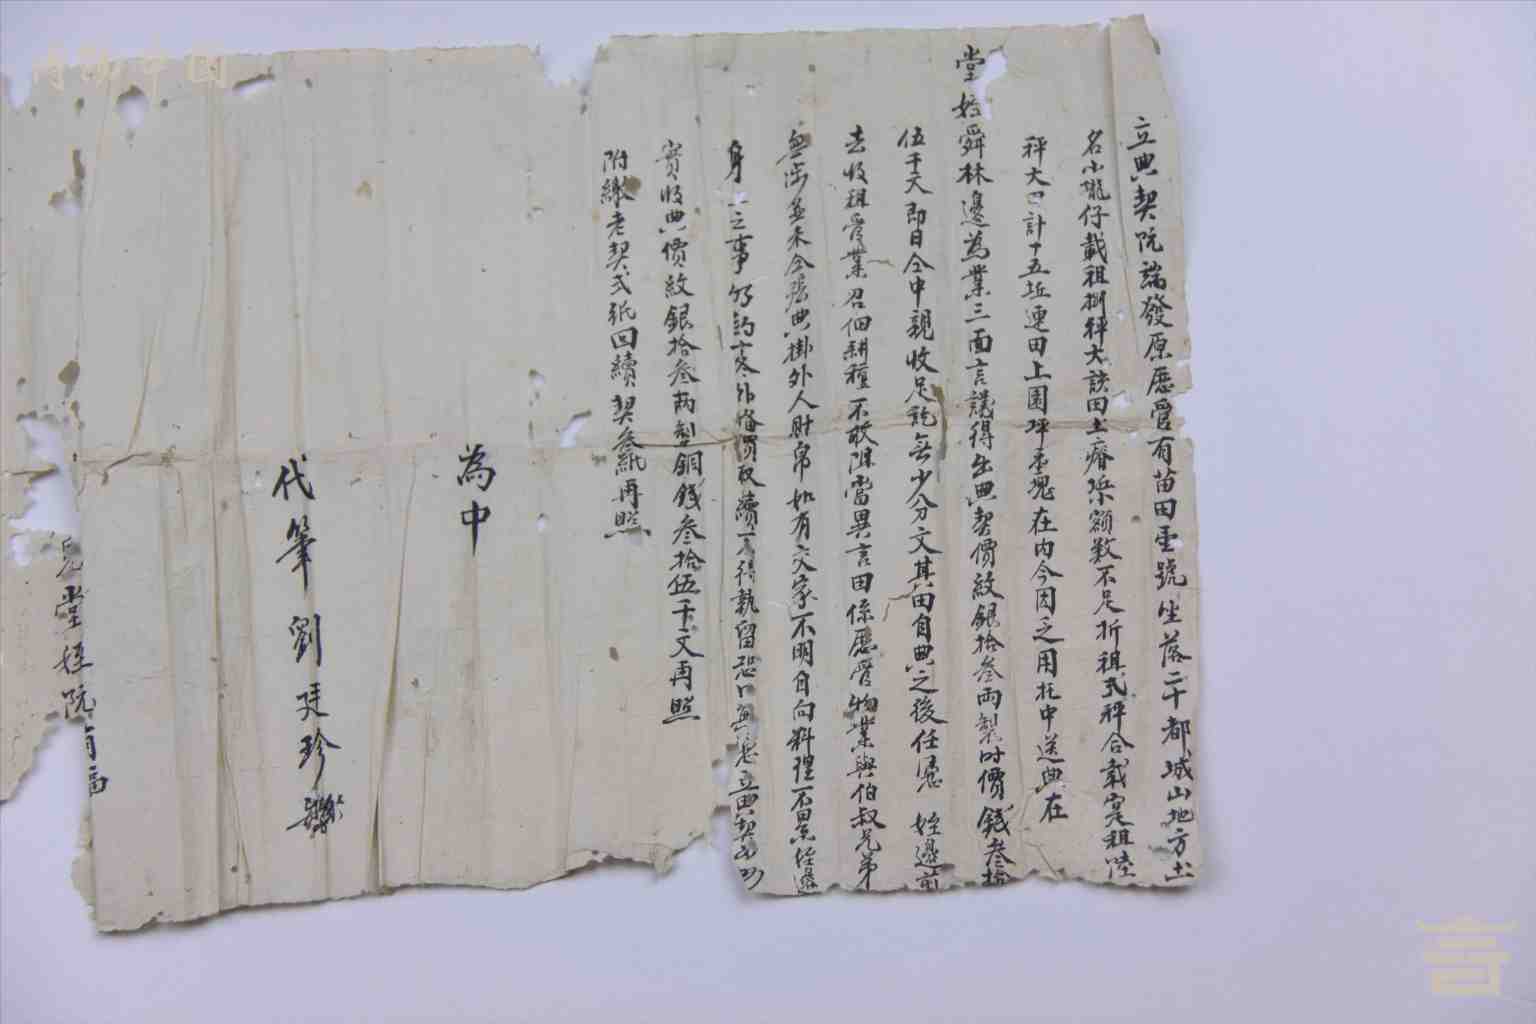 立典契阮端發原歷管有苗田壹號坐落二十都城山地方土
名小壠仔載租捌秤大該田土瘠涤額数不足折租弍秤合載寔租陸
秤大口計十五坵連田上園坪壹塊在内今因乏用托中送典在
堂姪舜林邊為業三面言議得出典契價紋銀拾叁兩製時價錢叁拾
伍千文即日仝中親收足訖無少分文其田自典之後任憑姪邊前
去收租管業召佃耕種不敢阻當異言田係歷管物業與伯叔兄弟
無涉並未仝張典掛外人財帛如有交家不明自向料理不累姪邊
身上之事仍約寔外偹價取續不得執留恐口無憑立典契為
實收典價紋銀拾叁兩製銅錢叁拾伍千文再照
附繳老契弍紙回續契叁紙再照
為中
代筆劉廷珍
堂姪阮